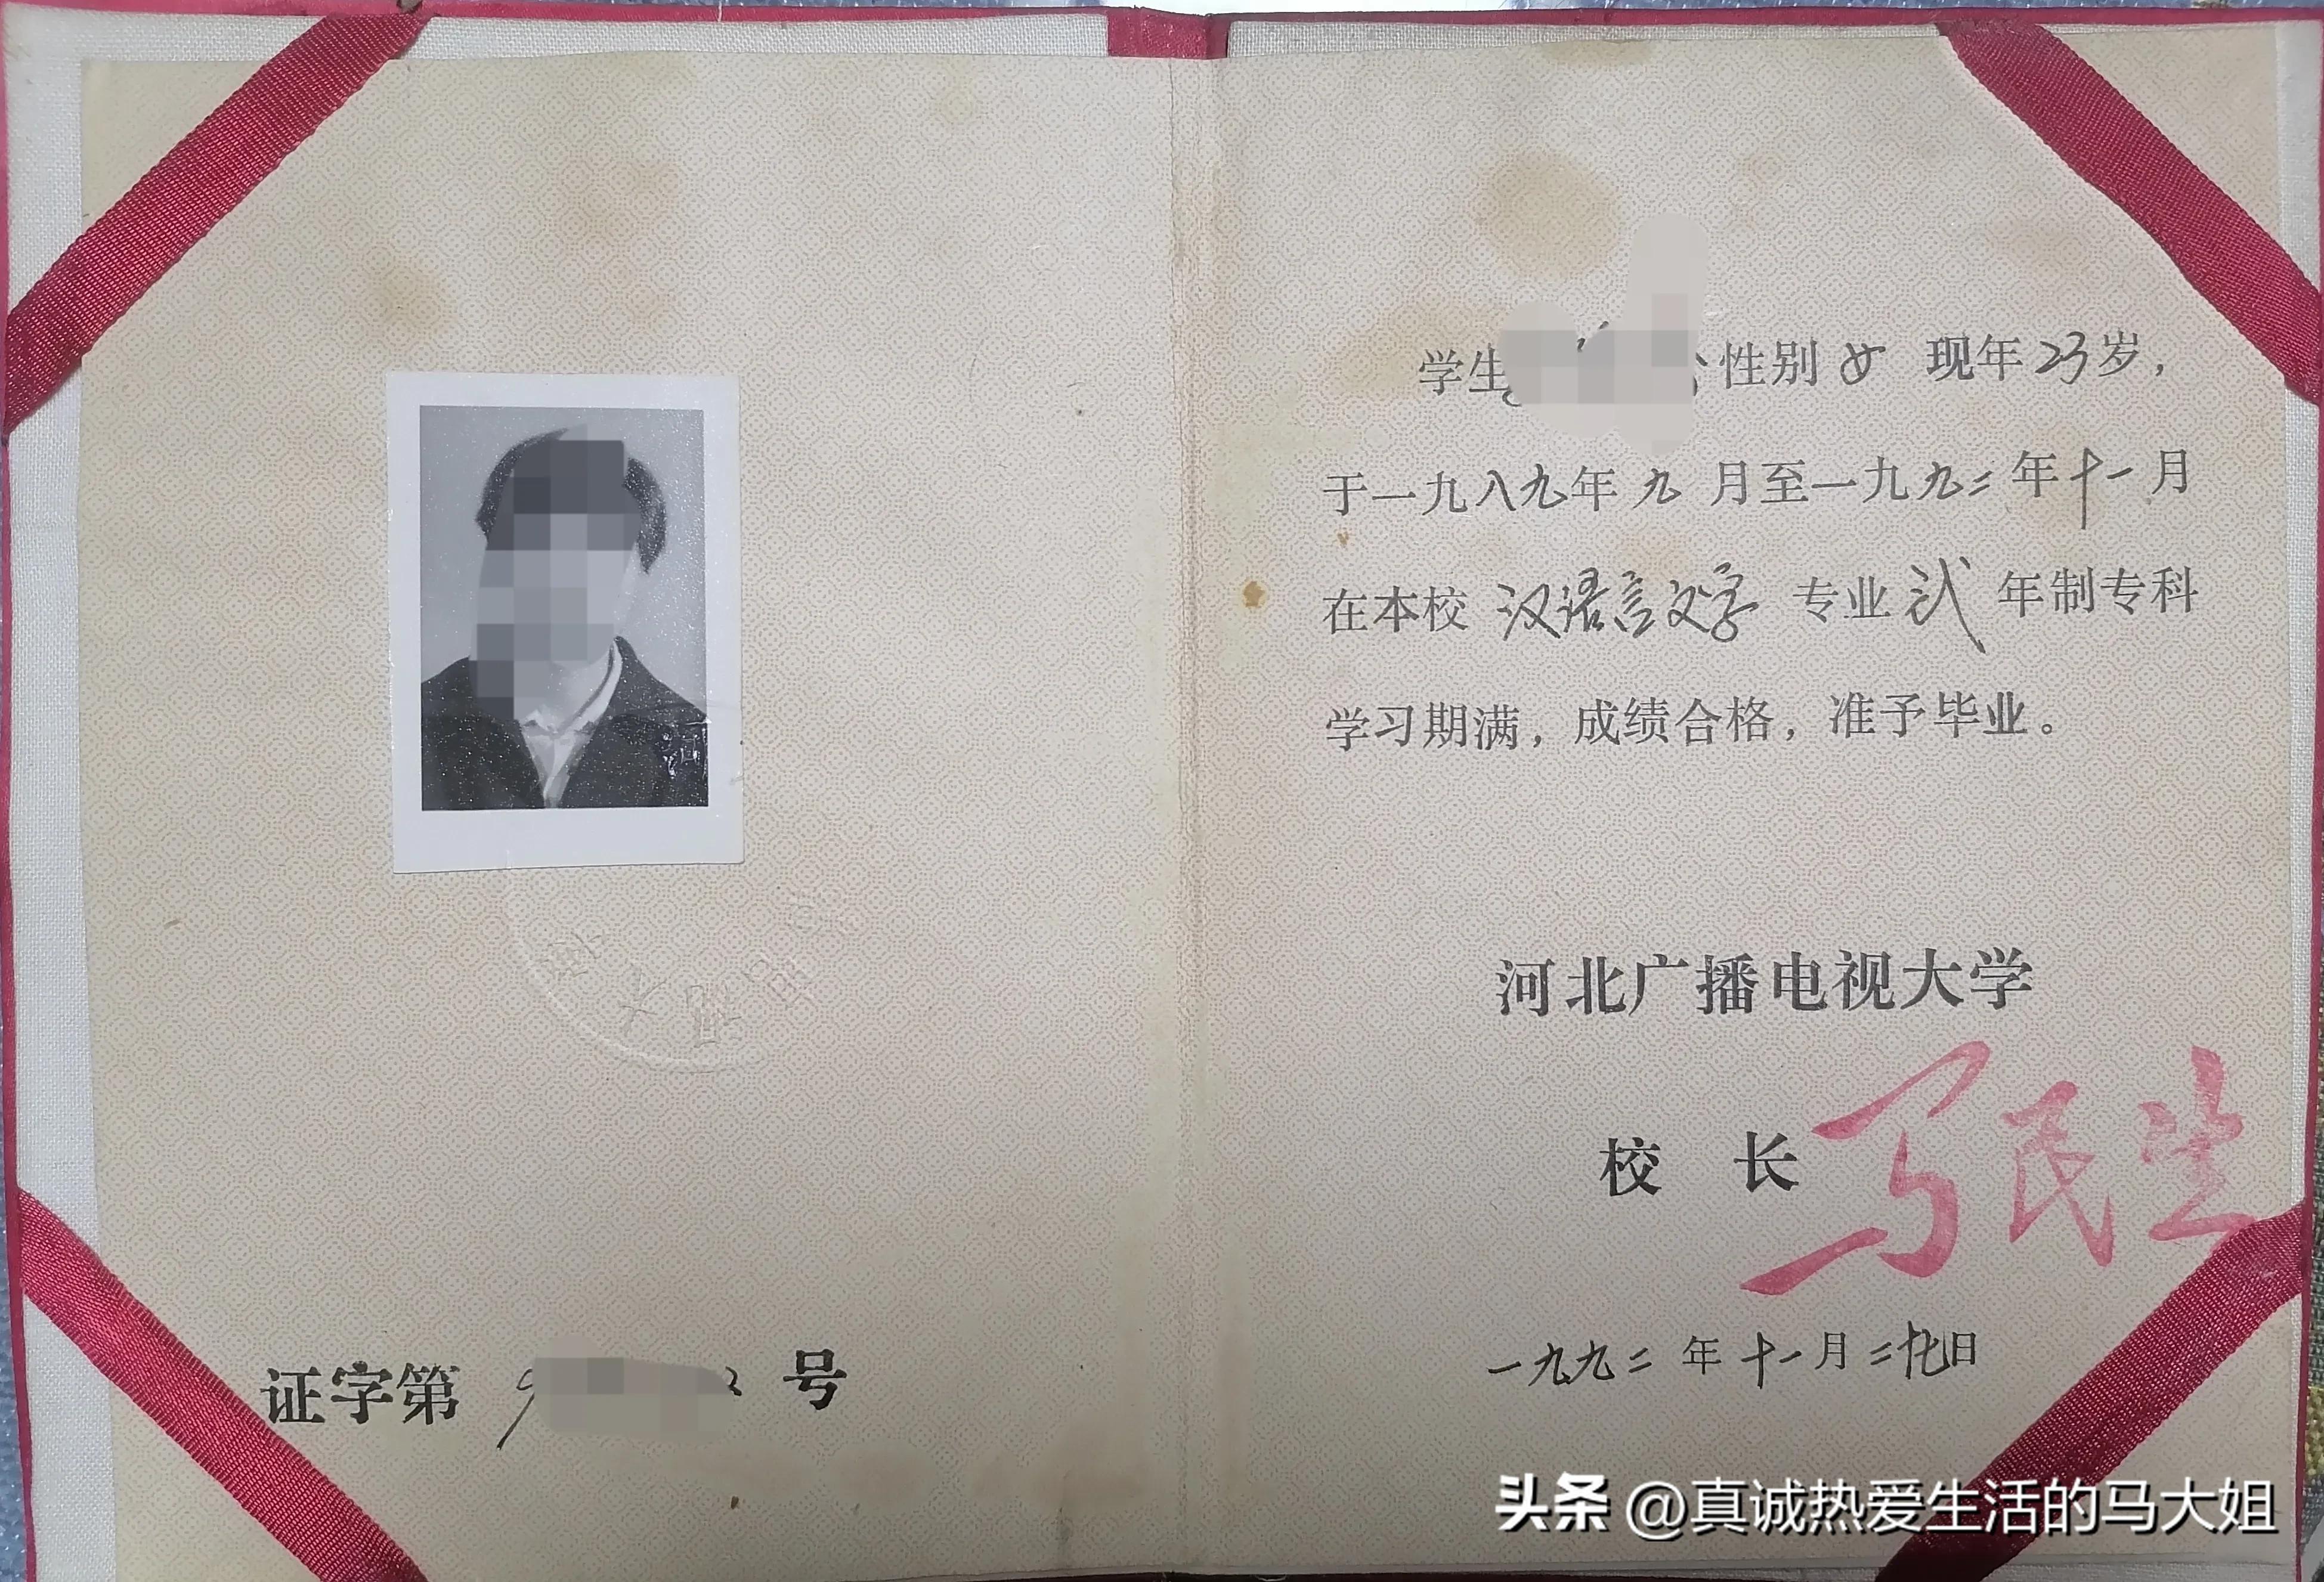 证字第 号
学生 性别 女 现年 23 岁，
于一九八九年九月至一九九二年十一月
在本校 汉语言文学 专业 弍 年制专科
学习期满，成绩合格，准予毕业。
河北广播电视大学
校 长 马民生
一九九二年十一月二十九日
头条 @真诚热爱生活的马大姐